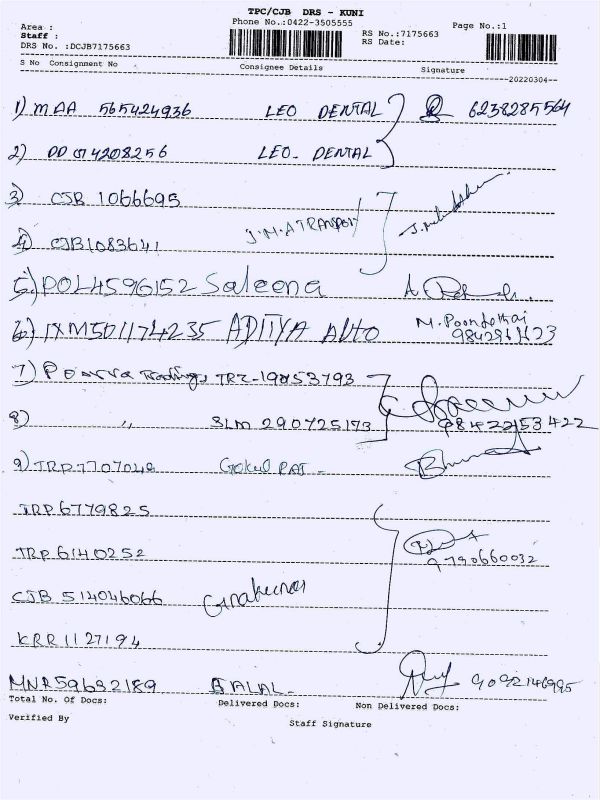 TPC/CJB DRS - KUNI
Area :
Phone No.:0422-3505555
Page No.:1
Staff :
RS No.:7175663
DRS No. :DCJB7175663
RS Date:
S No Consignment No Consignee Details Signature
20220304
1) MAA 565424936 LEO DENTAL 6238285564
2) LEO. DENTAL
3) CJB 1066695
4) CJB1083641 J.M.A TRANSPORT
5) POL4596152 Saleena
6) IXM501174235 ADITYA AUTO M. 
7) Trading TRZ-19053793
8) ,, SLM 290725173 9842253422
9) TRP7707048 Gokul PAT-
TRP6779825
TRP6140252 9790660032
CJB 514046066
KRR1127194
MNR59692189 JALAL- 9092146995
Total No. Of Docs: Delivered Docs: Non Delivered Docs:
Verified By
Staff Signature